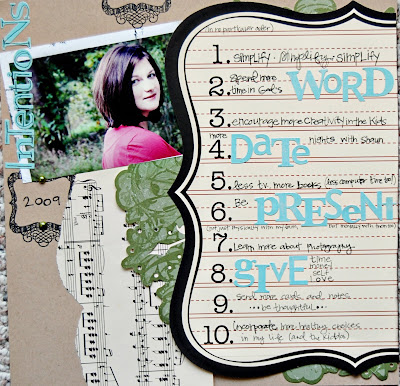 INTENTIONS
2009
(in no particular order)
1. simplify. simplify. simplify
2. Spend more
time in God's WORD
3. encourage more Creativity in the Kids
4. more DATE nights with Shaun
5. less tv. more books (less computer time too!)
6. Be PRESENT
(not just physically with my family, but mentally with them too)
7. Learn more about Photography
8. GIVE time
money
self
love
9. send more cards and notes
be thoughtful
10. Incorporate more healthy choices
in my life (and the kiddos)